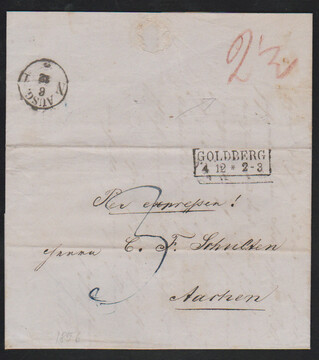 2½
AUSG.
GOLDBERG
4 12 * 2-3
Per expressen!
3
Herrn C. F. Schulten
Aachen